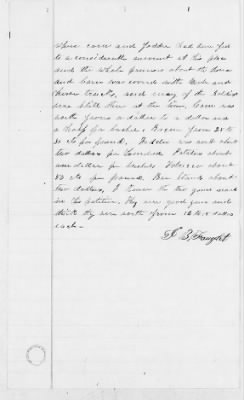 there corn and fodder had been fed
to a considerable amount at his place
and the whole premises about the house
and barn was covered with Mule and
horse tracks, and many of the Soldiers
were still there at the time, Corn was
worth from a dollar to a dollar and
a half per bushel. Bacon from 25 to
30 cts per pound. Fodder was worth about
two dollars per hundred Potatoes about
one dollar per bushel Tobacco about
to cts per pound. Bee Stands about
two dollars, I know the two guns
in the petition. They were good guns and
think they were worth from 10 to dollars
each—
B. Faught